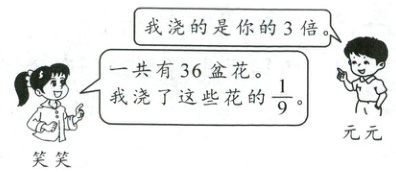 我浇的是你的3倍。
一共有36盆花。
我浇了这些花的1/9。
元元
笑笑